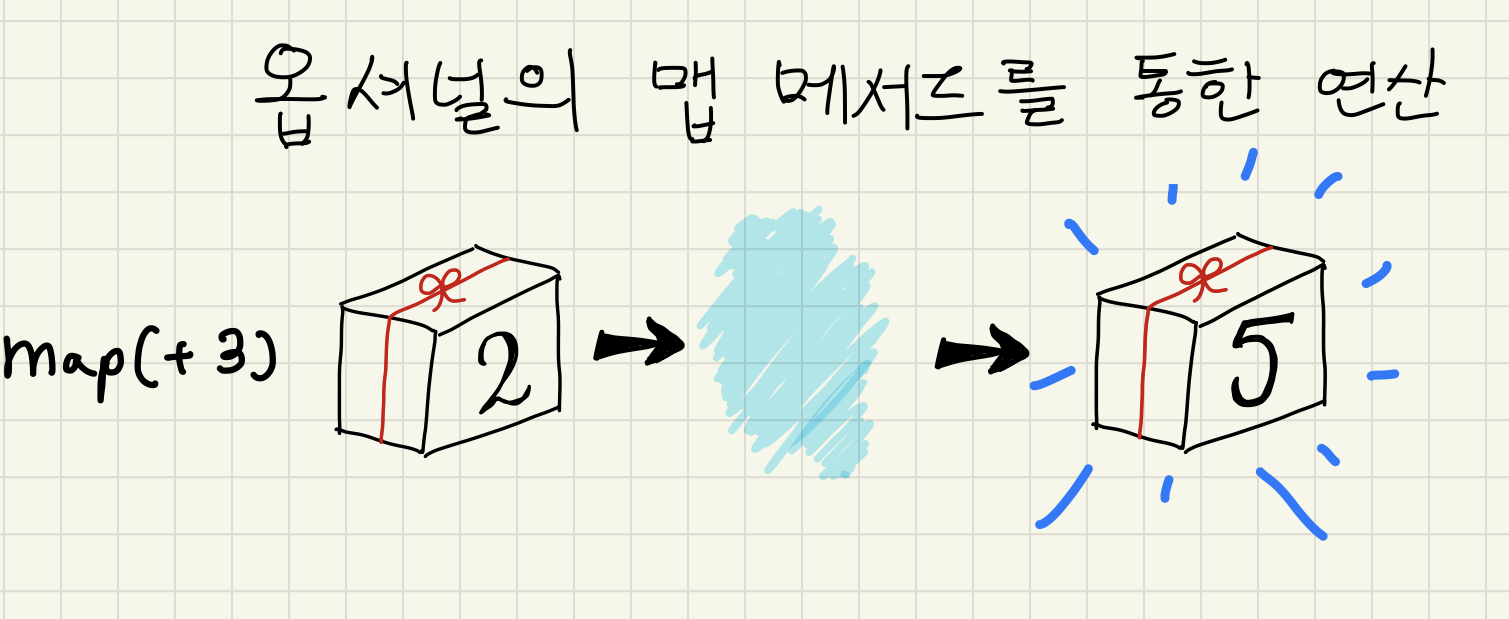 옵셔널의 맵 메서드를 통한 연산
map(+3) 2 5